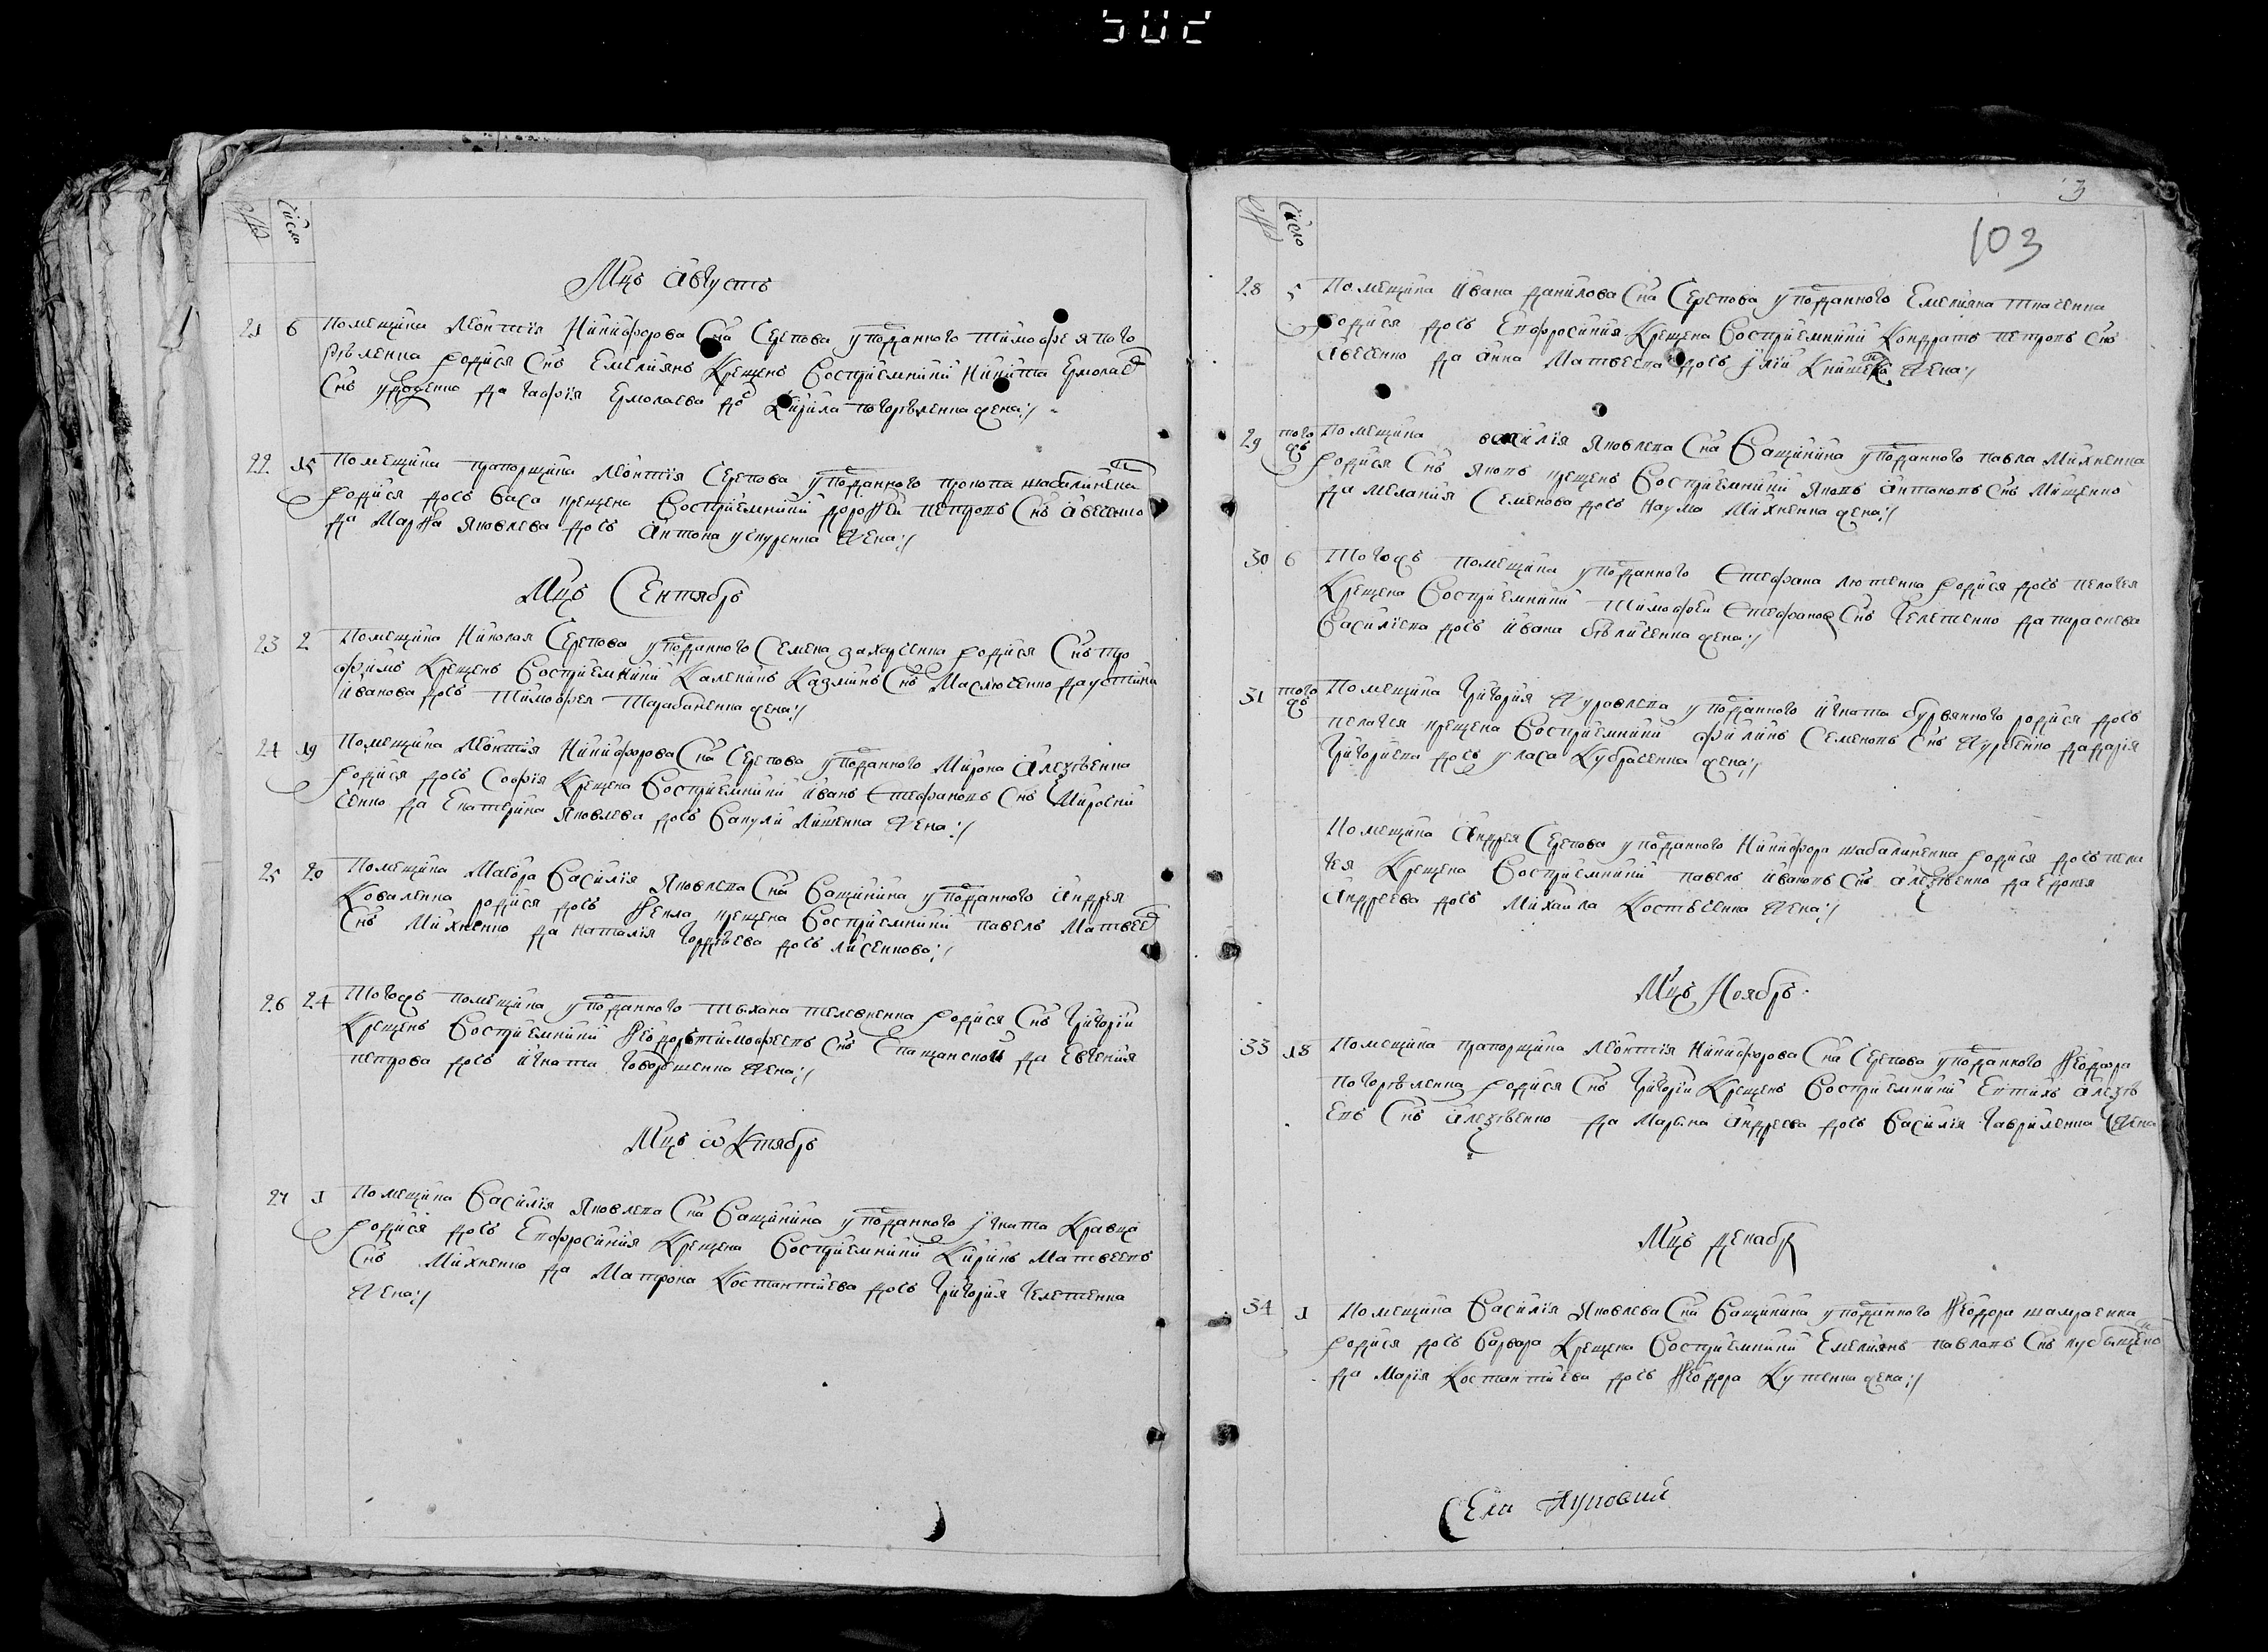 502
Число
Мцъ Августъ
21 6 Помещика Леонтїя Никифорова Сна Серкова у подданного тимофея пого
рѣленка родися Снъ Емелиянъ Крещенъ Восприемники Никита Ермолаев
Снъ да гафїя Ермолаева до Кирила погорѣленка жена:/
22 15 Помещика прапорщика Леонтїя Серкова у подданного прокопа шабалинка
родися дочь васа крещена Восприемники дорофеи петровъ Снъ Авсеенко
да Марфа Яковлева дочь Антона жена:/
Мцъ Сентябръ
23 2 Помещика Николая Серкова у подданного Семена захарченка родися Снъ тро
фимъ Крещенъ Восприемники Каленикъ Казминъ Снъ Маслюченко да устина
иванова дочь тимофея Тарабаненка жена:/
24 19 Помещика Леонтїя Никифорова Сна Серкова у подданного Мирона Алеѯѣенка
родися дочь Софїя Крещена Восприемники иванъ Стефановъ Снъ Мирошни
ченко да Екатерина Яковлева дочь Вакули Ляшенка жена:/
25 20 Помещика Маїора Василїя Яковлева Сна Ващинина у подданного Андрея
Коваленка родися дочь Фекла крещена Восприемники павелъ Матвеев
Снъ Михненко да наталїя Гордѣева дочь лисенкова:/
26 24 Тогожъ помещика у подданного родися Снъ Григорїи
Крещенъ Восприемники Феодоръ тимофеевъ Снъ Спащанскои да Евгения
петрова дочь игната Говорушенка жена:/
Мцъ Октябръ
27 1 Помещика Василїя Яковлева Сна Ващинина у подданного Iгната Кравца
родися дочь Ефросиния Крещена Восприемники Кирикъ Матвеевъ
Снъ Михненко да Матрона Костантиева дочь Григорїя Челетенка
жена:/
103
Число
28 5 Помещика Ивана данилова Сна Серкова у подданного Емелияна ткаченка
родися дочь Ефросиния Крещена Восприемники Кондратъ петровъ Снъ
Авсеенко да Анна Матвеева дочь жена:/
29 того жъ Помещика василїя Яковлева Сна Ващинина у подданного павла Михненка
родися Снъ Яковъ крещенъ Восприемники Яковъ Антоновъ Снъ Мищенко
да Мелания Семенова дочь Наума Михненка жена:/
30 6 Тогожъ помещика у подданного Стефана лютенка родися дочь пелагея
Крещена Восприемники Тимофеи Стефановъ Снъ Челетенко да параскева
Василїева дочь ивана бѣличенка жена:/
31 того жъ Помещика Григорїя Журавлева у подданного игната бурвянного родися дочь
пелагея крещена Восприемники филипъ Семеновъ Снъ Журбенко да дарїя
Григориева дочь уласа Кубраченка жена:/
Помещика Андрея Серкова у подданного Никифора шабалиненка родися дочь пела
гея Крещена Восприемники павелъ ивановъ Снъ Алеѯѣенко да Едокея
Андреева дочь Михаила Костѣченка жена:/
Мцъ Ноябръ
33 18 Помещика прапорщика Леонтїя Никифорова Сна Серкова у подданного Феодора
погорѣленка родися Снъ Григорїи Крещенъ Восприемники Евтихъ Алеѯѣ
евъ Снъ Алеѯѣенко да Марина Андреева дочь Василїя Гавриленка жена
Мцъ декабръ
34 1 Помещика Василїя Яковлева Сна Ващинина у подданного Феодора шамраенка
родися дочь варвара Крещена Восприемники Емелиянъ павловъ Снъ
да Марїя Костантиева дочь Феодора Кутенка жена:/
Села